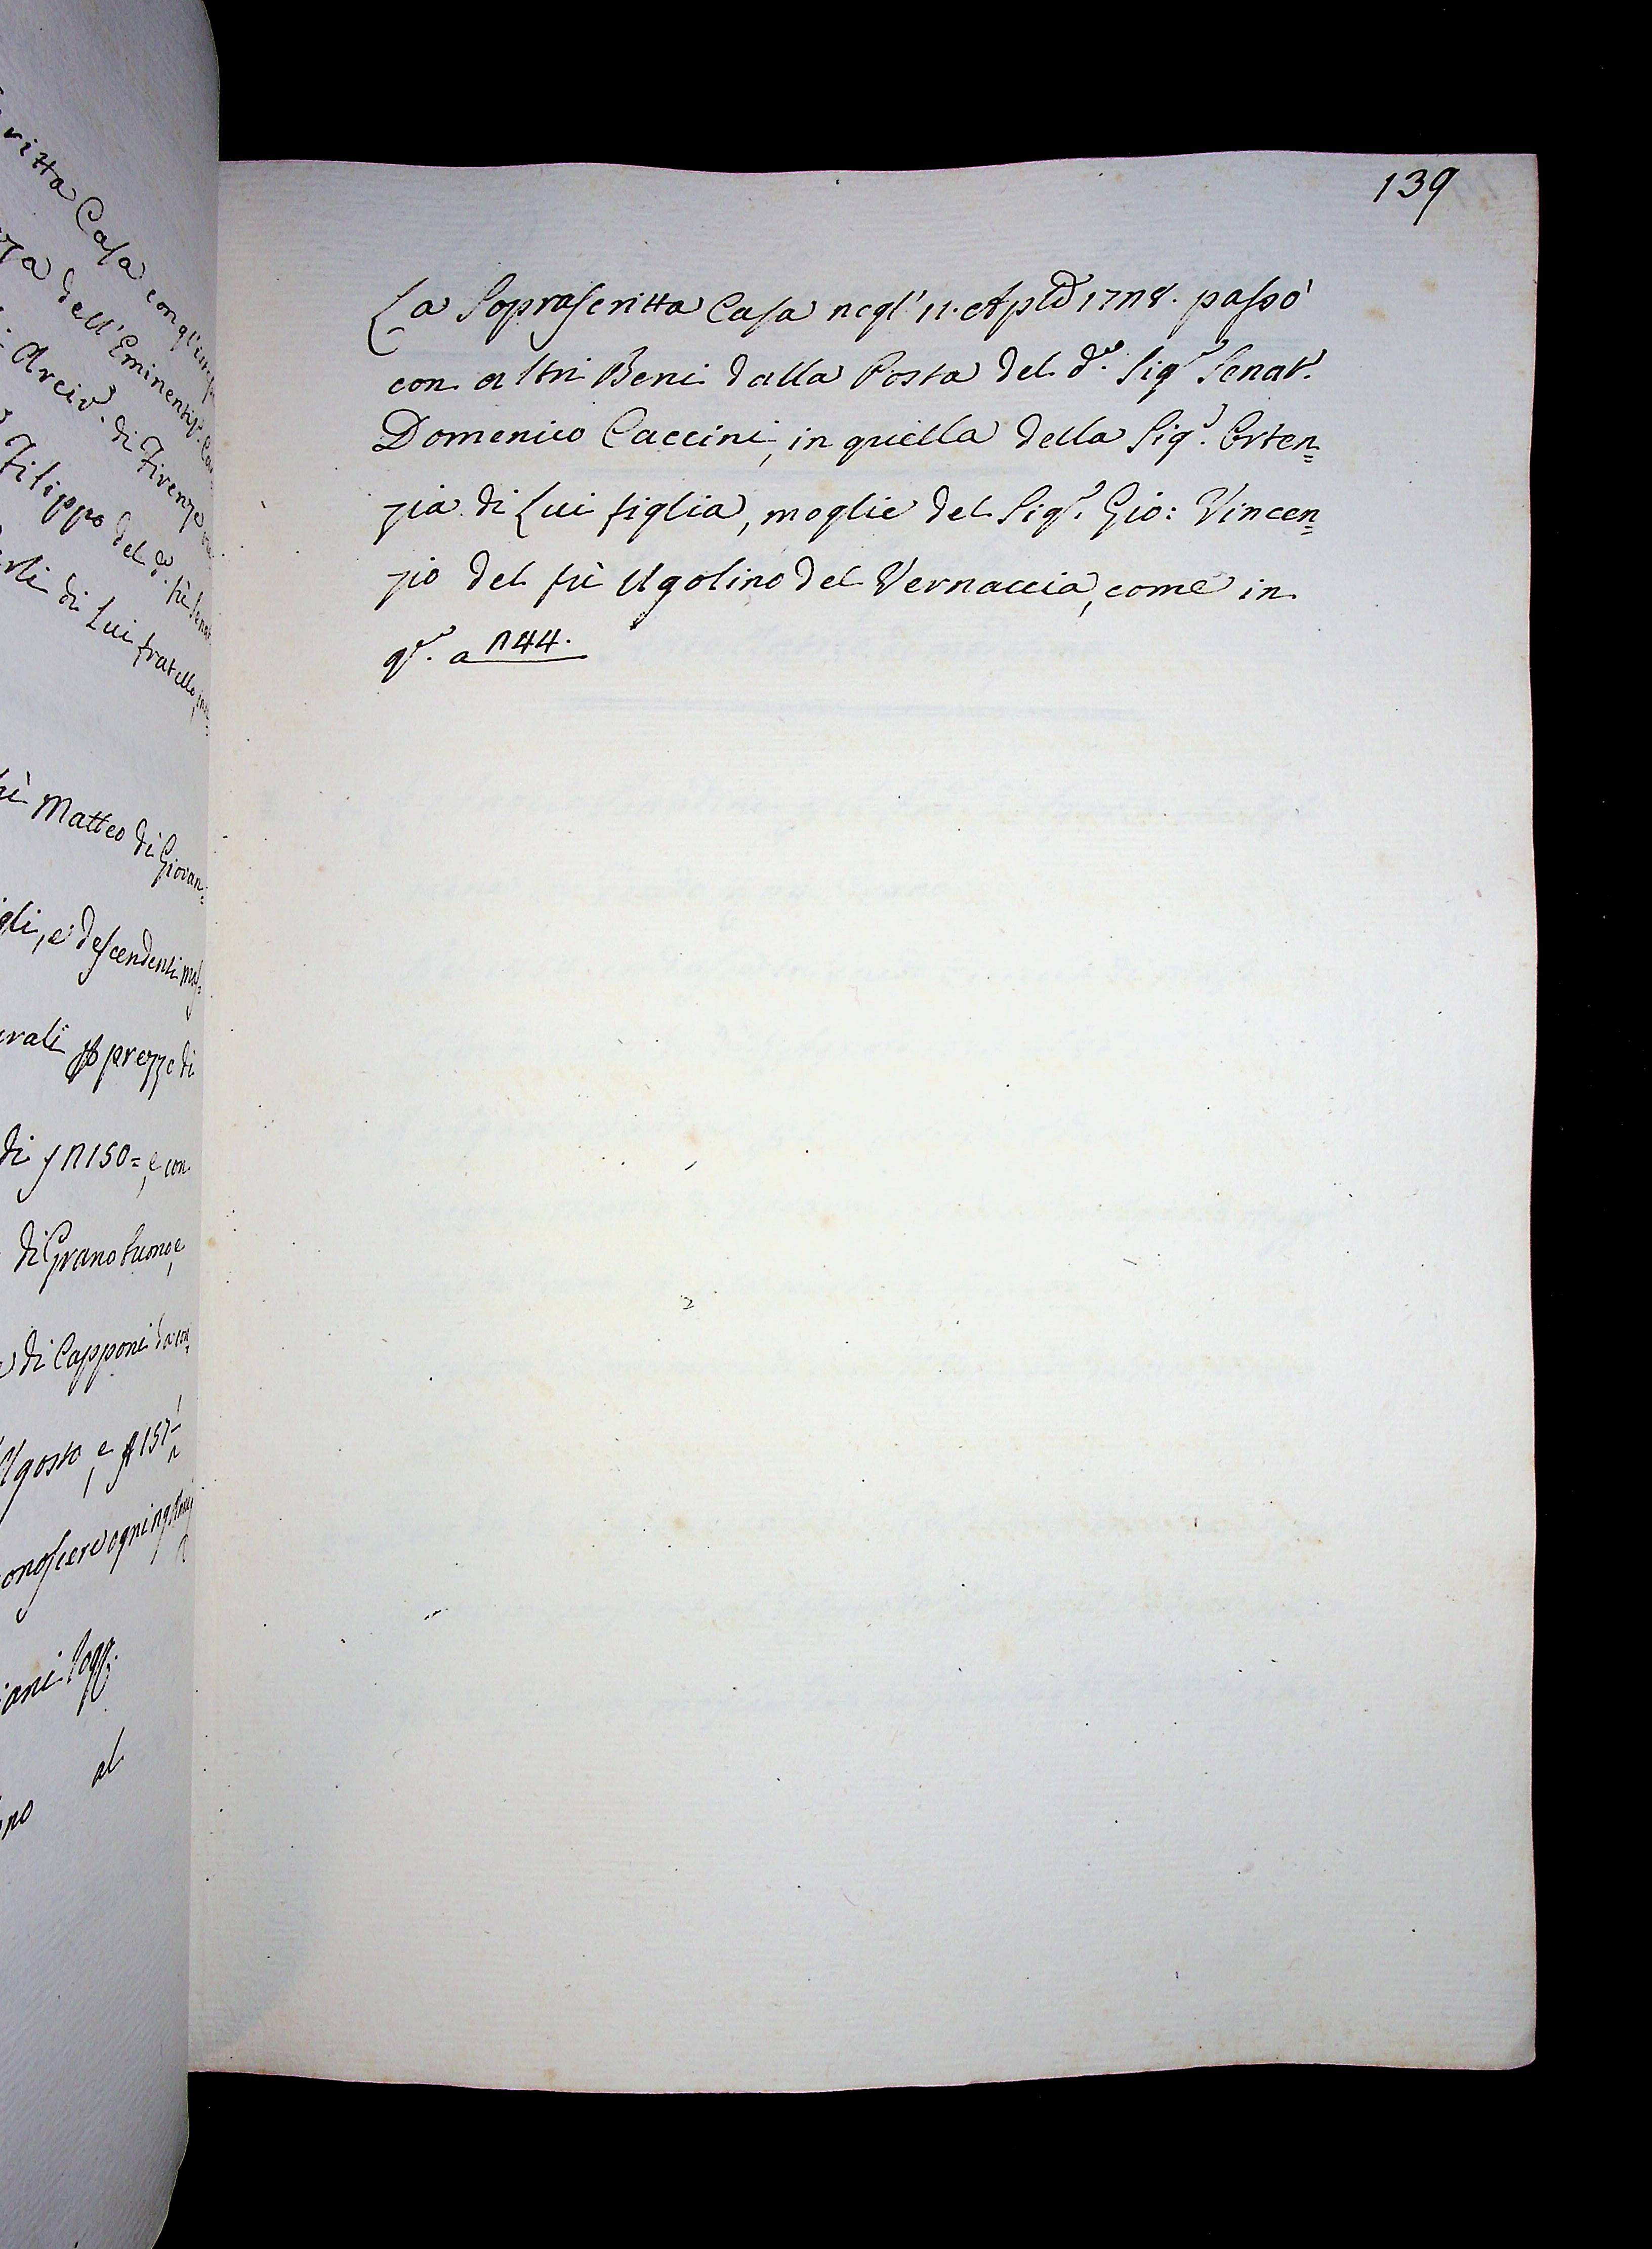 ritta Casa con gl'
za dell' Eminentiss.
Arciv. di Firenze
Filippo del d. fù Senat
di Lui fratello,
fù Matteo di Giovan=
gli, e descendenti mas=
urali prezzo di
di 150= e con
di Grano buono, e
di Capponi da con=
Agosto, e
onoscere ogni
iani
al
no
139
La Soprascritta Casa negl' 11. Aple 1728. passò
con altri Beni dalla Posta del d.º Sig.r Senat.r
Domenico Caccini, in quella della Sig.ra Orten=
zia di Lui figlia, moglie del Sig.r Gio: Vincen=
zio del fù Ugolino del Vernaccia, come in
q.º a 244.